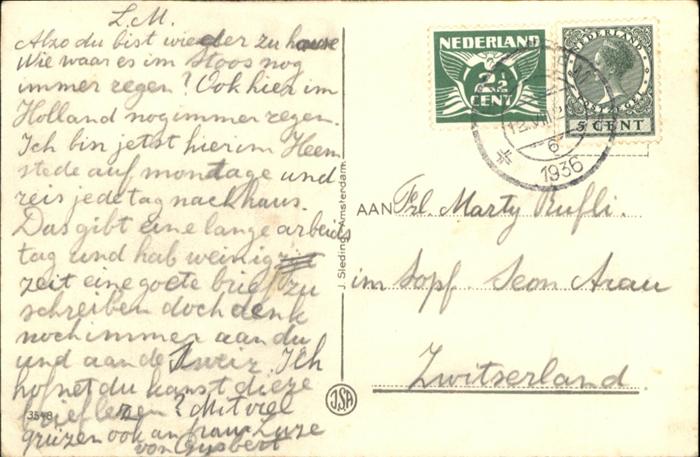 L.M.
Alzo du bist wieder zu hause
Wie waar es im Stoos nog
immer regen? Ook hier im
Holland nog immer regen.
Ich bin jetst hier im Heem
stede auf montage und
reis jede tag nach haus.
Das gibt eine lange arbeids
tag und hab weinig
zeit eine goete brief zu
schreiben doch denk
noch immer aan du
und aan de Zweiz. Ich
hof net du kanst dieze
brief lezen? Mit viel
grüzen ook an frau Luze
von Gysbert
3548
J. Sleding, Amsterdam
JSA
NEDERLAND
2½
CENT
NEDERLAND
5 CENT
12.VIII
6
1936
AAN Frl. Marty Rufli.
im Sopf. Seon Arau
Zwitserland.